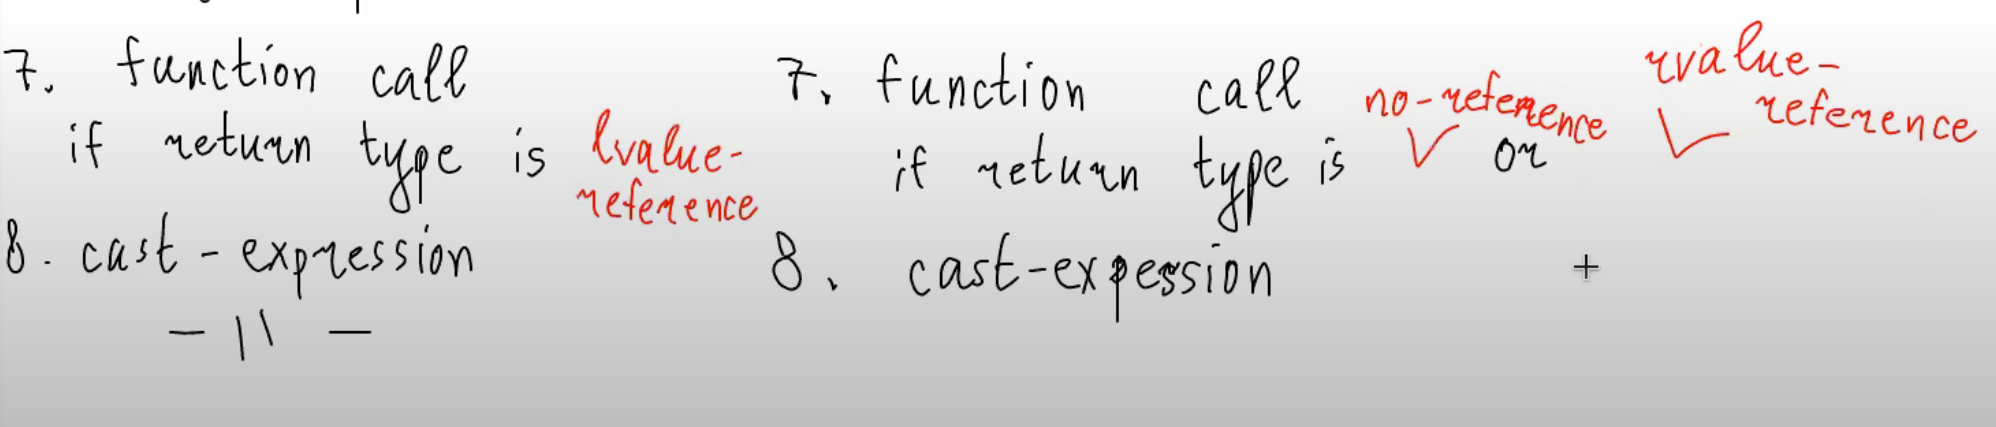 7. function call
if return type is lvalue-
reference
8. cast-expression
- || -
7. function call
if return type is no-reference or rvalue-
reference
8. cast-expession